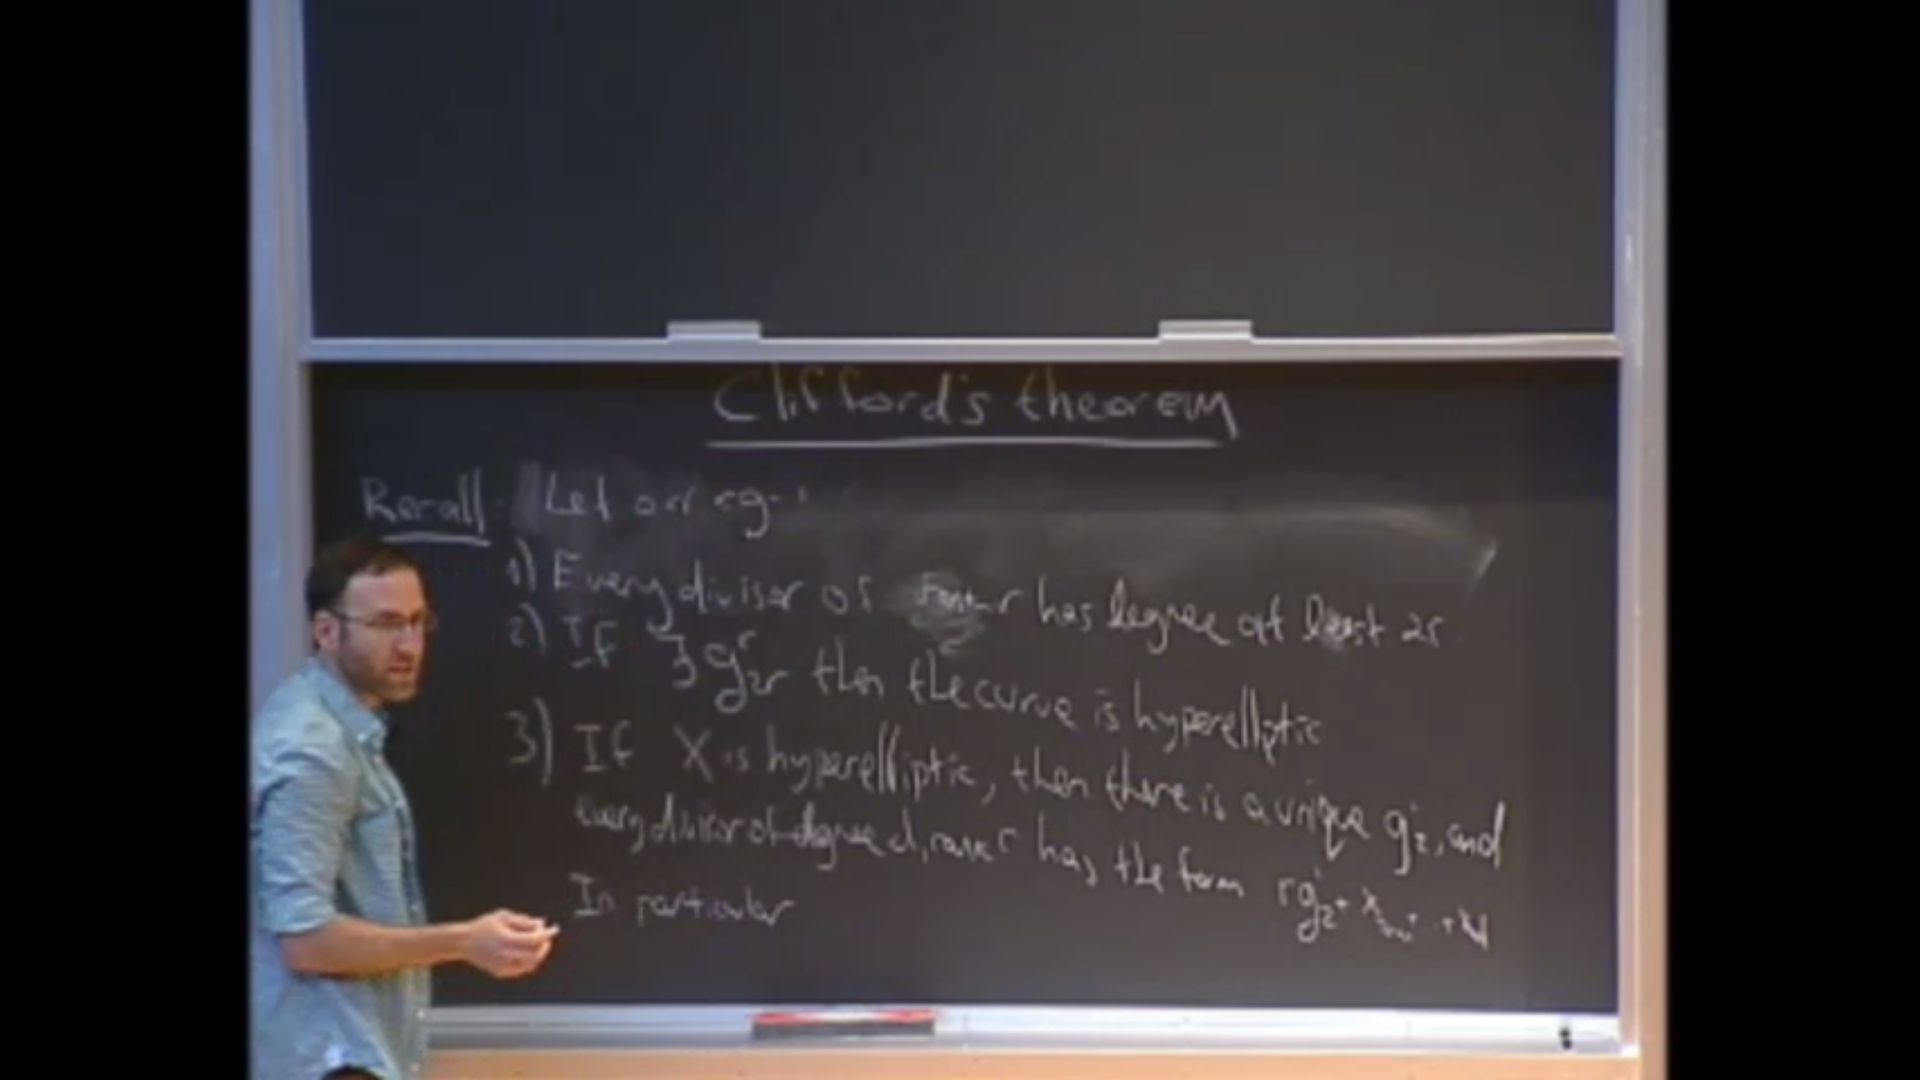 Clifford's theorem
Recall: Let o<r<g-1
1) Every divisor of rank r has degree at least 2r.
2) If ∃ g^r_{2r} then the curve is hyperelliptic
3) If X is hyperelliptic, then there is a unique g^1_2, and
every divisor of degree d, rank r has the form rg^1_2 +
In particular